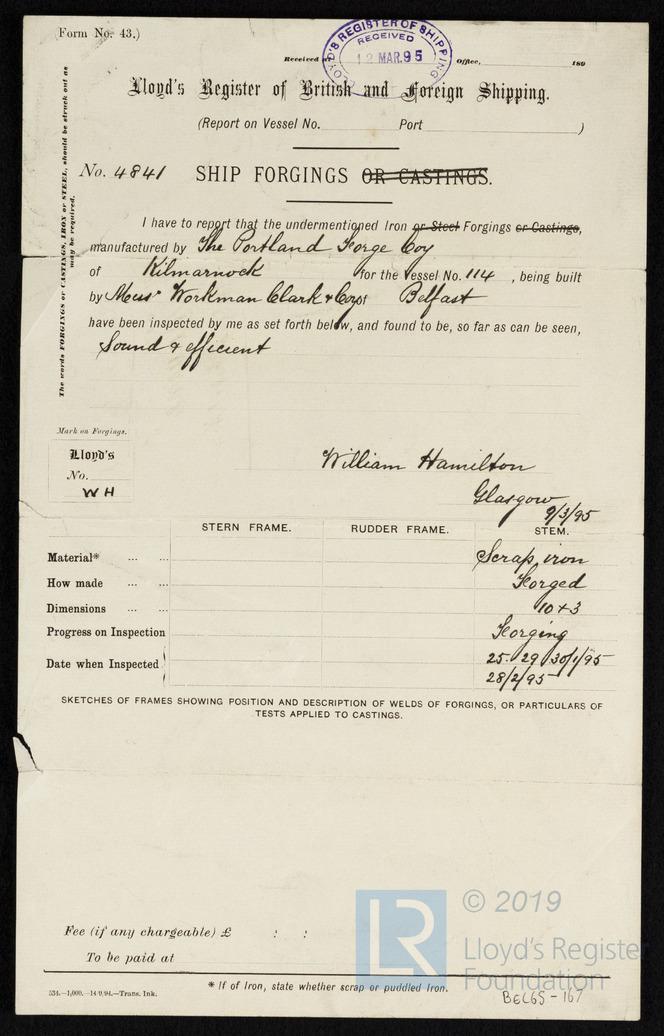 (Form No. 43.)
LLOYD'S REGISTER OF SHIPPING
RECEIVED
12 MAR. 95
Received Office, 189
Lloyd's Register of British and Foreign Shipping.
(Report on Vessel No. Port )
No. 4841 SHIP FORGINGS OR CASTINGS.
The words FORGINGS or CASTINGS, IRON or STEEL, should be struck out as
may be required.
I have to report that the undermentioned Iron or Steel Forgings or Castings,
manufactured by The Portland Forge Coy
of Kilmarnock for the Vessel No. 114 , being built
by Messrs Workman Clark & Coy of Belfast
have been inspected by me as set forth below, and found to be, so far as can be seen,
Sound & efficient
Mark on Forgings.
Lloyd's
No.
WH
William Hamilton
Glasgow
9/3/95
STERN FRAME. RUDDER FRAME. STEM.
Material* ... ... Scrap iron
How made ... ... Forged
Dimensions ... ... 10 x 3
Progress on Inspection Forging
Date when Inspected 25. 29 30/1/95
28/2/95
SKETCHES OF FRAMES SHOWING POSITION AND DESCRIPTION OF WELDS OF FORGINGS, OR PARTICULARS OF
TESTS APPLIED TO CASTINGS.
Fee (if any chargeable) £ : :
To be paid at
* If of Iron, state whether scrap or puddled Iron.
534.—1,000.—14/9/94.—Trans. Ink.
LR
© 2019
Lloyd's Register
Foundation
BEL65-167